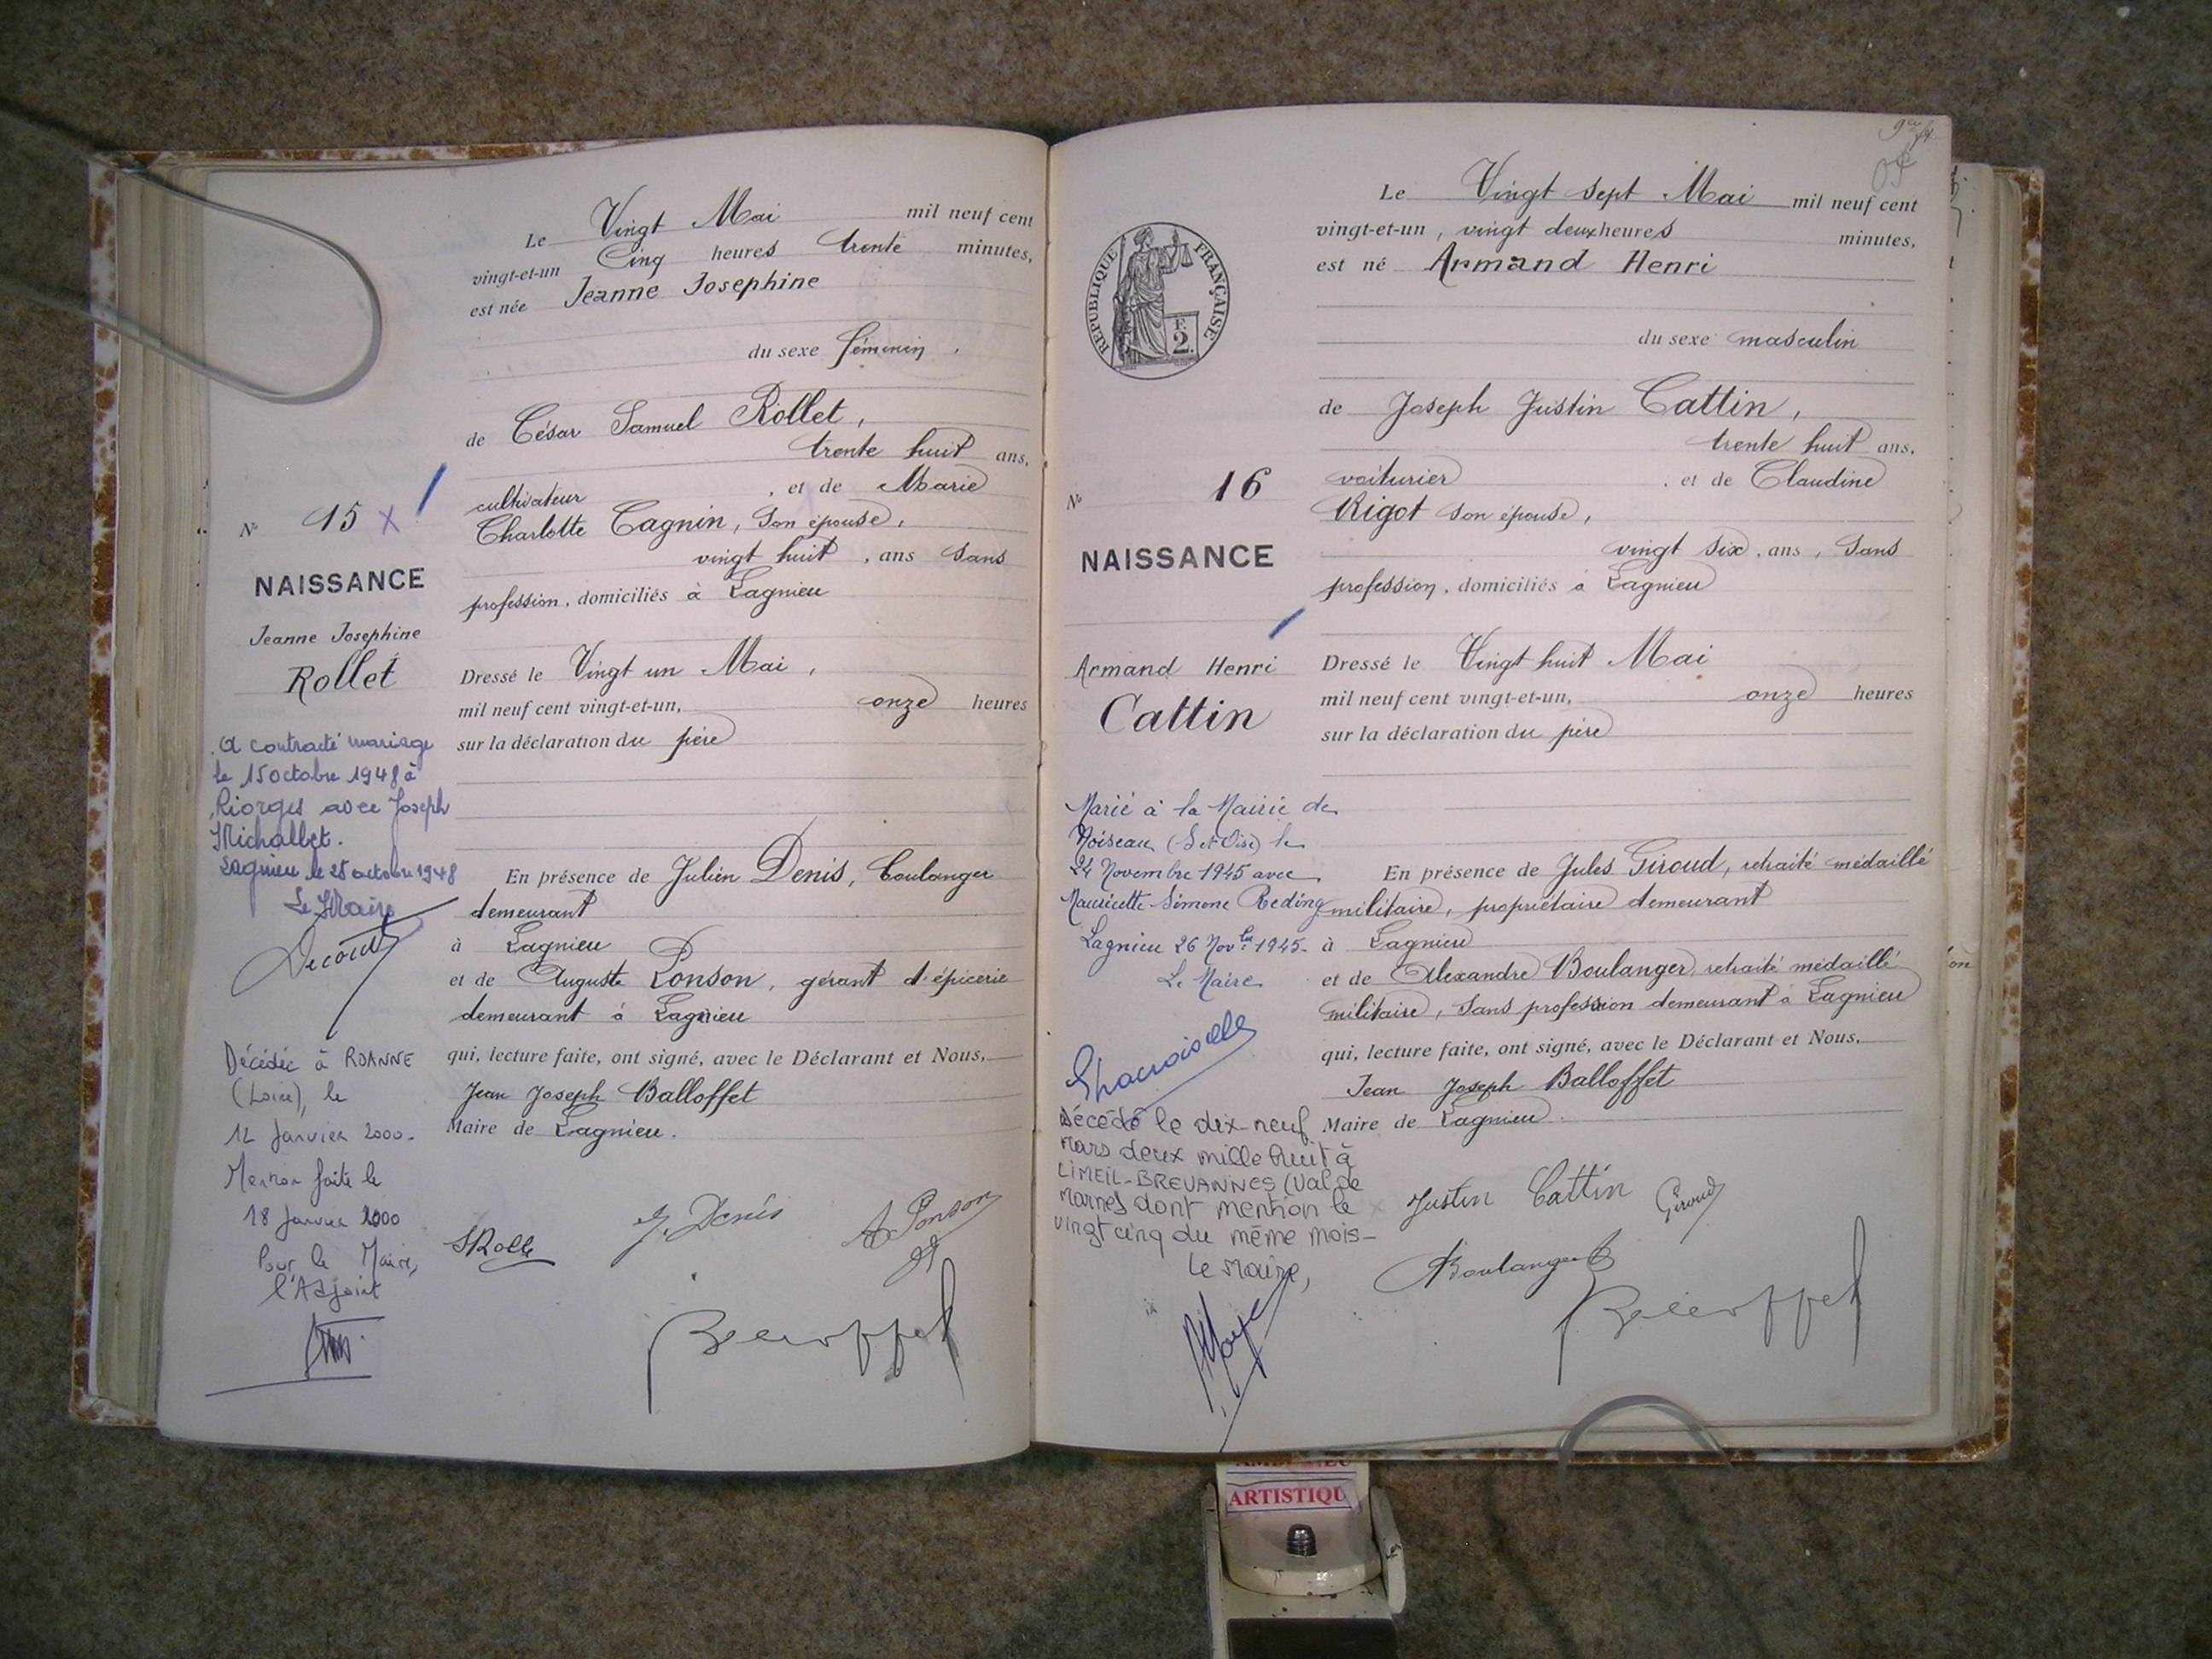 Le Vingt Mai mil neuf cent
vingt-et-un Cinq heures trente minutes,
est née Jeanne Josephine
du sexe féminin,
de César Samuel Rollet,
trente huit ans,
cultivateur, et de Marie
Charlotte Cagnin, son épouse,
vingt huit, ans sans
profession, domiciliés à Lagnieu
Dressé le Vingt un Mai,
mil neuf cent vingt-et-un, onze heures
sur la déclaration du père
En présence de Julien Denis, boulanger
demeurant
à Lagnieu
et de Auguste Ponson, gérant d'épicerie
demeurant à Lagnieu
qui, lecture faite, ont signé, avec le Déclarant et Nous,
Jean Joseph Balloffet
Maire de Lagnieu.
J. Denis
A Ponson
N° 15 X
NAISSANCE
Jeanne Josephine
Rollet
A contracté mariage
le 15 octobre 1948 à
Riorges avec Joseph
Michallet.
Lagnieu le 25 octobre 1948
Le Maire
Décédée à ROANNE
(Loire), le
12 Janvier 2000.
Mention faite le
18 Janvier 2000
Pour le Maire,
l'Adjoint
Le Vingt sept Mai mil neuf cent
vingt-et-un, vingt deux heures minutes,
est né Armand Henri
du sexe masculin
de Joseph Justin Cattin,
trente huit ans,
voiturier, et de Claudine
Rigot son épouse,
vingt six, ans, sans
profession, domiciliés à Lagnieu
Dressé le Vingt huit Mai
mil neuf cent vingt-et-un, onze heures
sur la déclaration du père
En présence de Jules Giroud, retraité médaillé
militaire, propriétaire demeurant
à Lagnieu
et de Alexandre Boulanger, retraité médaillé
militaire, sans profession demeurant à Lagnieu
qui, lecture faite, ont signé, avec le Déclarant et Nous,
Jean Joseph Balloffet
Maire de Lagnieu.
Justin Cattin
Giroud
Boulanger
REPUBLIQUE FRANÇAISE
F.
2.
N° 16
NAISSANCE
Armand Henri
Cattin
Marié à la Mairie de
Noiseau (S et Oise) le
24 Novembre 1945 avec
Mauricette Simone Reding
Lagnieu 26 Novbre 1945.
Le Maire
Décédé le dix-neuf
mars deux mille huit à
LIMEIL-BREVANNES (Val de
Marne) dont mention le
vingt cinq du même mois-
Le Maire,
ARTISTIQU